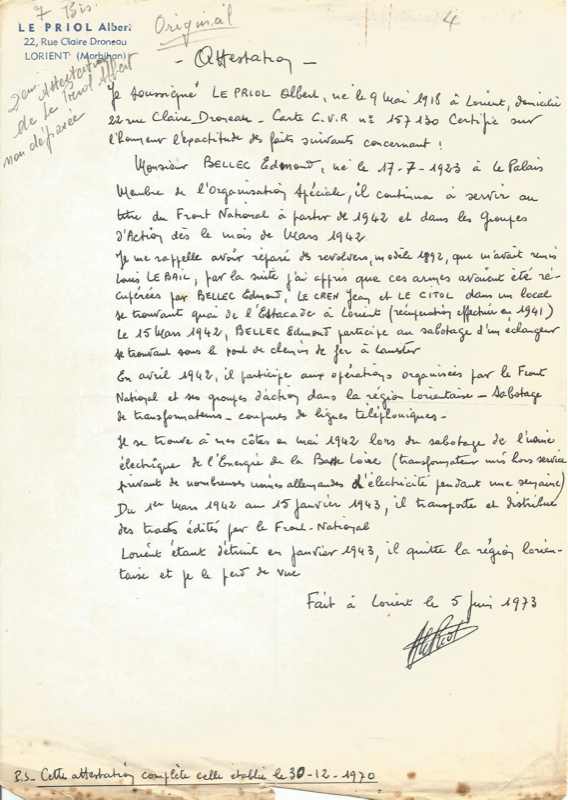 7 Bis
LE PRIOL Albert
22, Rue Claire Droneau
LORIENT (Morbihan)
Original
4
2ème Attestation
de Le Priol Albert
non déposée
- Attestation -
Je soussigné LE PRIOL Albert, né le 9 Mai 1918 à Lorient, domicilié
22 rue Claire Droneau - Carte C.V.R n° 157130 Certifie sur
l'honneur l'exactitude des faits suivants concernant :
Monsieur BELLEC Edmond, né le 17-7-1923 à Le Palais
Membre de l'Organisation Spéciale, il continua à servir au
titre du Front National à partir de 1942 et dans les Groupes
d'Action dès le mois de Mars 1942
Je me rappelle avoir réparé de revolvers, modèle 1892, que m'avait remis
Louis LE BAIL, par la suite j'ai appris que ces armes avaient été ré-
cupérées par BELLEC Edmond, LE CREN Jean et LE CITOL dans un local
se trouvant quai de l'Estacade à Lorient (récupération effectuée en 1941)
Le 15 Mars 1942, BELLEC Edmond participe au sabotage d'un échangeur
se trouvant sous le pont de chemin de fer à Lanester
En avril 1942, il participe aux opérations organisées par le Front
National et ses groupes d'action dans la région Lorientaise - Sabotage
de transformateurs - coupures de lignes téléphoniques -
Je se trouve à mes côtés en mai 1942 lors du sabotage de l'usine
électrique de l'Energie de la Basse Loire (transformateur mis hors service
privant de nombreuses usines allemandes d'électricité pendant une semaine)
Du 1er Mars 1942 au 15 janvier 1943, il transporte et distribue
des tracts édités par le Front-National
Lorient étant détruit en janvier 1943, il quitte la région lorien-
taise et je le perd de vue
Fait à Lorient le 5 Juin 1973
P.S - Cette attestation complète celle établie le 30-12-1970